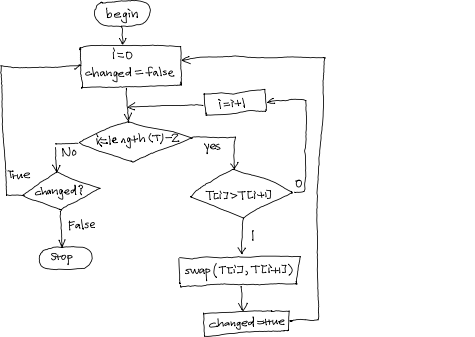 begin
i=0
changed=false
i=i+1
i<=length(T)-2
No
yes
True
changed?
T[i]>T[i+1]
0
False
1
Stop
swap(T[i],T[i+1])
changed=true